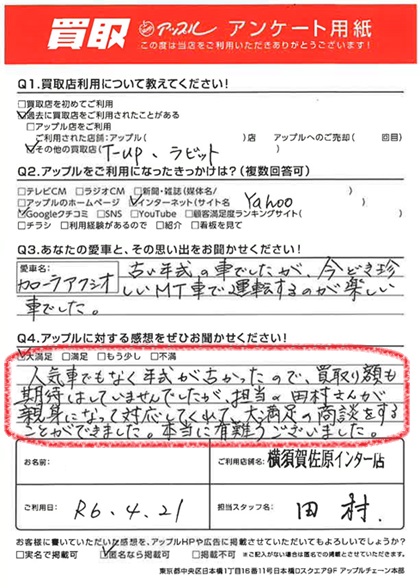 買取 アップル アンケート用紙
この度は当店をご利用いただきありがとうございます!
Q1.買取店利用について教えてください!
□買取店を初めてご利用
☑過去に買取店をご利用されたことがある
□アップル店をご利用
ご利用された店舗:アップル( )店 アップルへのご売却( 回目)
☑その他の買取店( T-UP、ラビット )
Q2.アップルをご利用になったきっかけは?(複数回答可)
□テレビCM □ラジオCM □新聞・雑誌(媒体名/ )
□アップルのホームページ ☑インターネット(サイト名 Yahoo )
☑Googleクチコミ □SNS □YouTube □顧客満足度ランキングサイト( )
□チラシ □利用経験があるので □紹介 □看板を見て
Q3.あなたの愛車と、その思い出をお聞かせください!
愛車名:
カローラアクシオ
古い年式の車でしたが、今どき珍
しいMT車で運転するのが楽しい
車でした。
Q4.アップルに対する感想をぜひお聞かせください!
☑大満足 □満足 □もう少し □不満
人気車でもなく年式が古かったので、買取り額も
期待はしていませんでしたが、担当の田村さんが
親身になって対応してくれて、大満足の商談をする
ことができました。本当に有難うございました。
お名前:
ご利用店舗名: 横須賀佐原インター店
ご利用日: R6.4.21
担当スタッフ名: 田村
お客様に書いていただいた感想を、アップルHPや広告に掲載させていただいてもよろしいでしょうか?
□実名で掲載可 ☑匿名なら掲載可 □掲載不可 ※ご記入がない場合は匿名での掲載とさせていただきます。
東京都中央区日本橋1丁目16番11号日本橋ロスクエア9F アップルチェーン本部